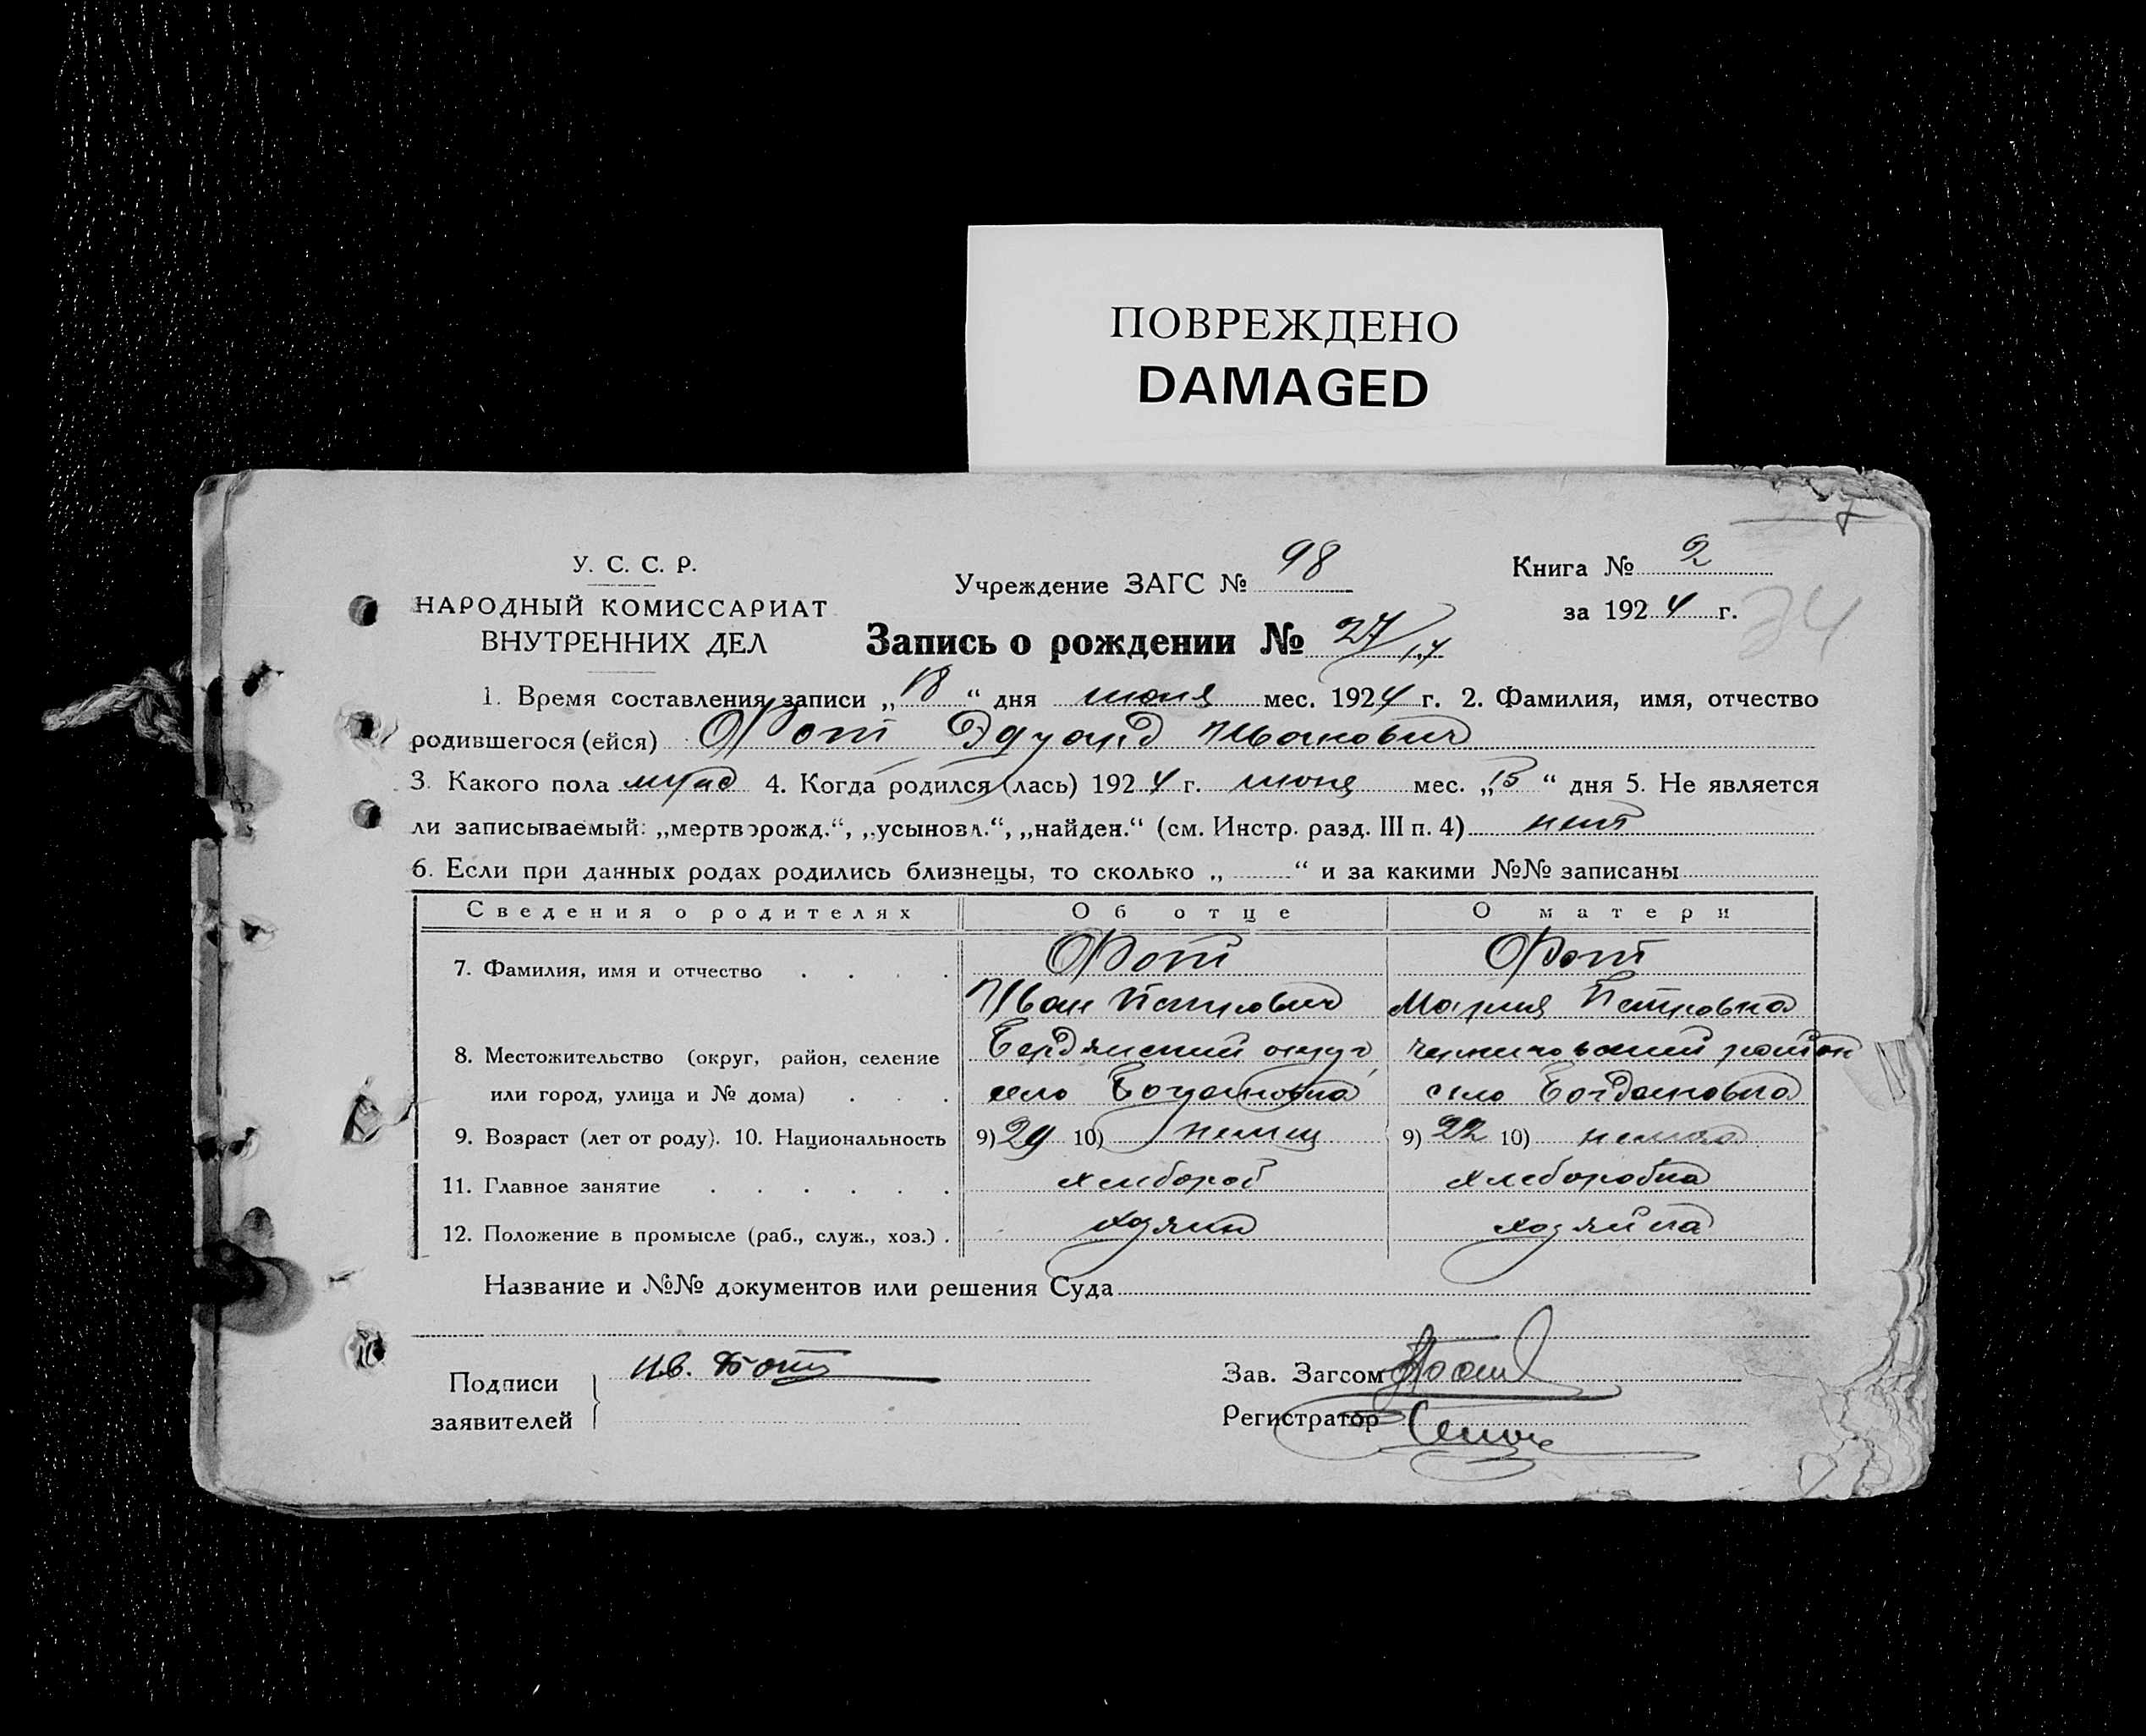 ПОВРЕЖДЕНО
DAMAGED
7
34
У. С. С. Р.
НАРОДНЫЙ КОМИССАРИАТ
ВНУТРЕННИХ ДЕЛ
Учреждение ЗАГС № 98
Книга № 2
за 1924 г.
Запись о рождении № 27/
1. Время составления записи „18“ дня июня мес. 1924 г. 2. Фамилия, имя, отчество
родившегося (ейся) Фот Эдуард Иванович
3. Какого пола муж 4. Когда родился (лась) 1924 г. июня мес. „15“ дня 5. Не является
ли записываемый: „мертворожд.“, „усыновл.“, „найден.“ (см. Инстр. разд. III п. 4) нет
6. Если при данных родах родились близнецы, то сколько „ “ и за какими №№ записаны
Сведения о родителях Об отце О матери
7. Фамилия, имя и отчество Фот Фот
Иван Петрович Мария Петровна
8. Местожительство (округ, район, селение Бердянский округ, Черниговский район
или город, улица и № дома) село Богдановка село Богдановка
9. Возраст (лет от роду). 10. Национальность 9) 29 10) немец 9) 22 10) немка
11. Главное занятие хлебороб хлеборобка
12. Положение в промысле (раб., служ., хоз.) хозяин хозяйка
Название и №№ документов или решения Суда
Подписи
заявителей
Ив. Фотъ
Зав. Загсом
Регистратор